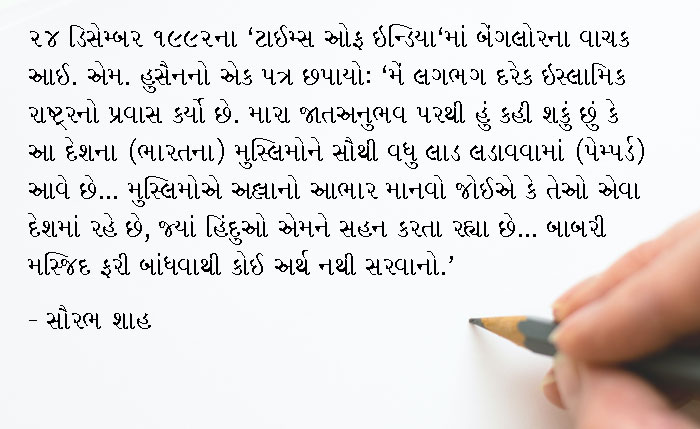 ૨૪ ડિસેમ્બર ૧૯૯૨ના ‘ટાઈમ્સ ઓફ ઇન્ડિયા‘માં બેંગલોરના વાચક
આઈ. એમ. હુસૈનનો એક પત્ર છપાયો: ‘મેં લગભગ દરેક ઇસ્લામિક
રાષ્ટ્રનો પ્રવાસ કર્યો છે. મારા જાતઅનુભવ પરથી હું કહી શકું છું કે
આ દેશના (ભારતના) મુસ્લિમોને સૌથી વધુ લાડ લડાવવામાં (પેમ્પર્ડ)
આવે છે... મુસ્લિમોએ અલ્લાનો આભાર માનવો જોઈએ કે તેઓ એવા
દેશમાં રહે છે, જ્યાં હિંદુઓ એમને સહન કરતા રહ્યા છે... બાબરી
મસ્જિદ ફરી બાંધવાથી કોઈ અર્થ નથી સરવાનો.’
- સૌરભ શાહ